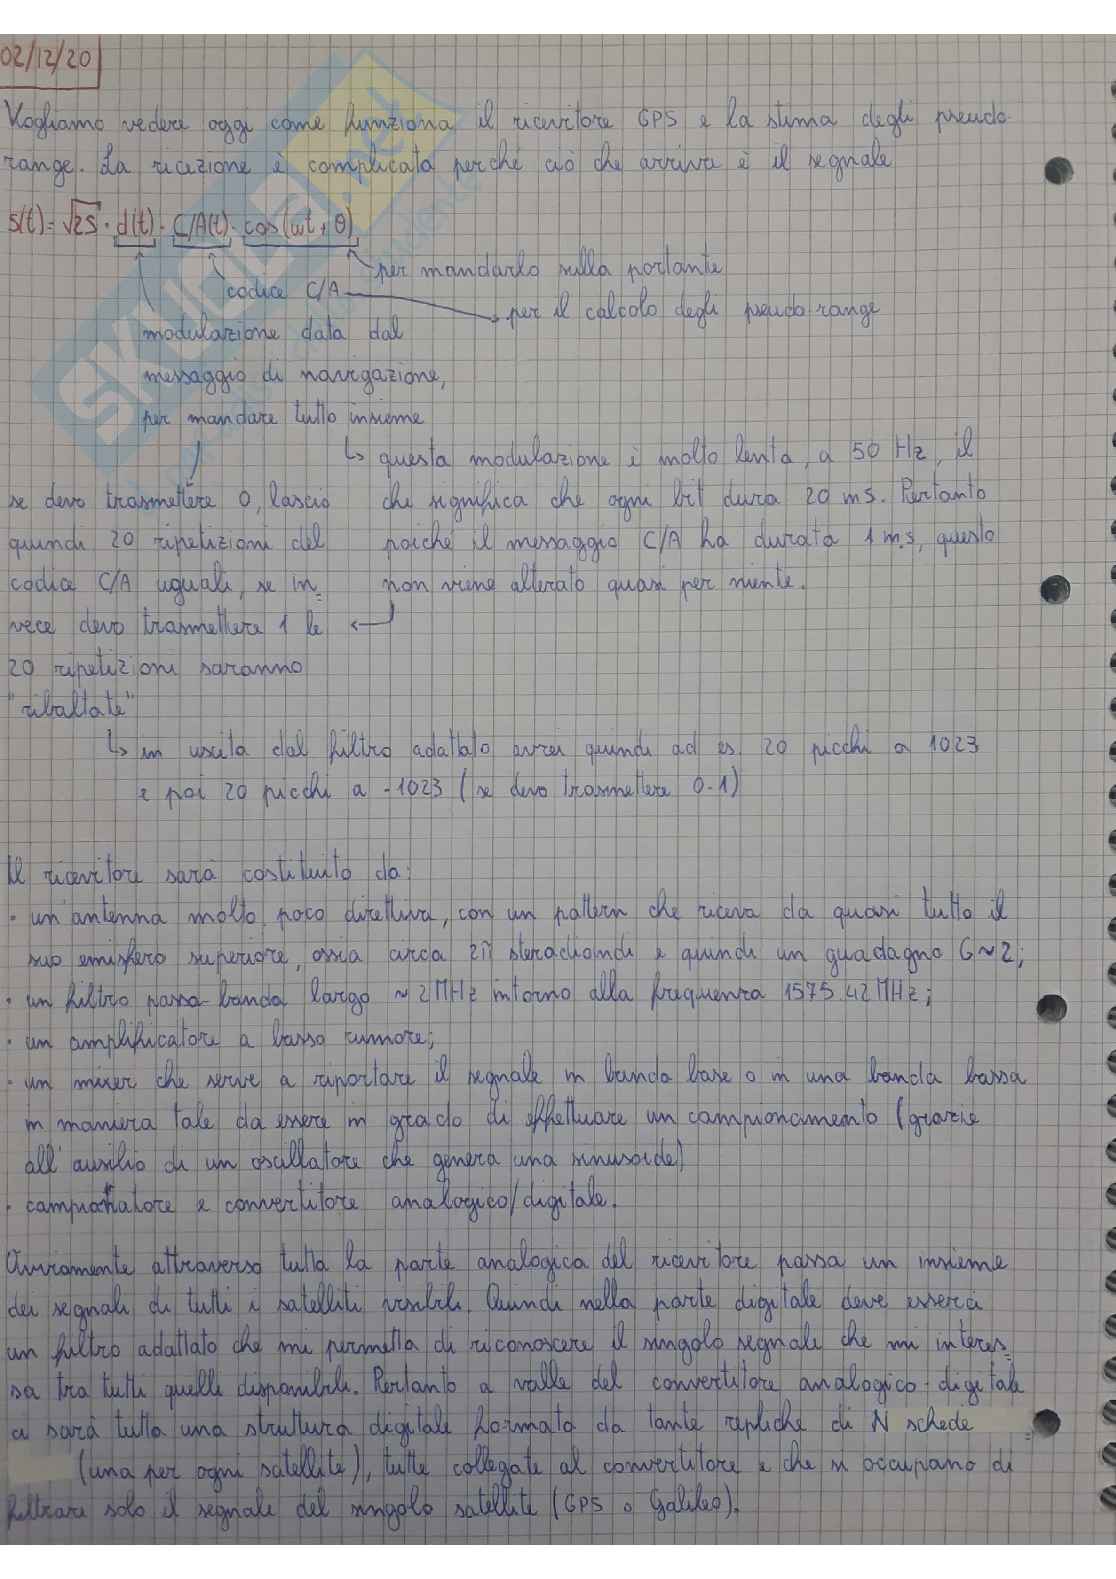 02/12/20
Vogliamo vedere oggi come funziona il ricevitore GPS e la stima degli pseudo-
range. La ricezione è complicata perché ciò che arriva è il segnale
s(t) = √2S · d(t) · C/A(t) · cos(ωt + θ)
per mandarlo sulla portante
codice C/A
per il calcolo degli pseudo-range
modulazione data dal
messaggio di navigazione,
per mandare tutto insieme
questa modulazione è molto lenta, a 50 Hz, il
che significa che ogni bit dura 20 ms. Pertanto
poiché il messaggio C/A ha durata 1 ms, questo
non viene alterato quasi per niente.
se devo trasmettere 0, lascio
quindi 20 ripetizioni del
codice C/A uguali, se in=
vece devo trasmettere 1 le
20 ripetizioni saranno
"ribaltate"
in uscita dal filtro adattato avrei quindi ad es. 20 picchi a 1023
e poi 20 picchi a -1023 (se devo trasmettere 0-1)
Il ricevitore sarà costituito da:
· un'antenna molto poco direttiva, con un pattern che riceva da quasi tutto il
suo emisfero superiore, ossia circa 2π steradiandi e quindi un guadagno G~2;
· un filtro passa-banda largo ~2MHz intorno alla frequenza 1575.42 MHz;
· un amplificatore a basso rumore;
· un mixer che serve a riportare il segnale in banda base o in una banda bassa
in maniera tale da essere in grado di effettuare un campionamento (grazie
all'ausilio di un oscillatore che genera una sinusoide)
· campionatore e convertitore analogico/digitale.
Ovviamente attraverso tutta la parte analogica del ricevitore passa un insieme
dei segnali di tutti i satelliti visibili. Quindi nella parte digitale deve esserci
un filtro adattato che mi permetta di riconoscere il singolo segnale che mi interes=
sa tra tutti quelli disponibili. Pertanto a valle del convertitore analogico-digitale
ci sarà tutta una struttura digitale formata da tante repliche di N schede
(una per ogni satellite), tutte collegate al convertitore e che si occupano di
filtrare solo il segnale del singolo satellite (GPS o Galileo).